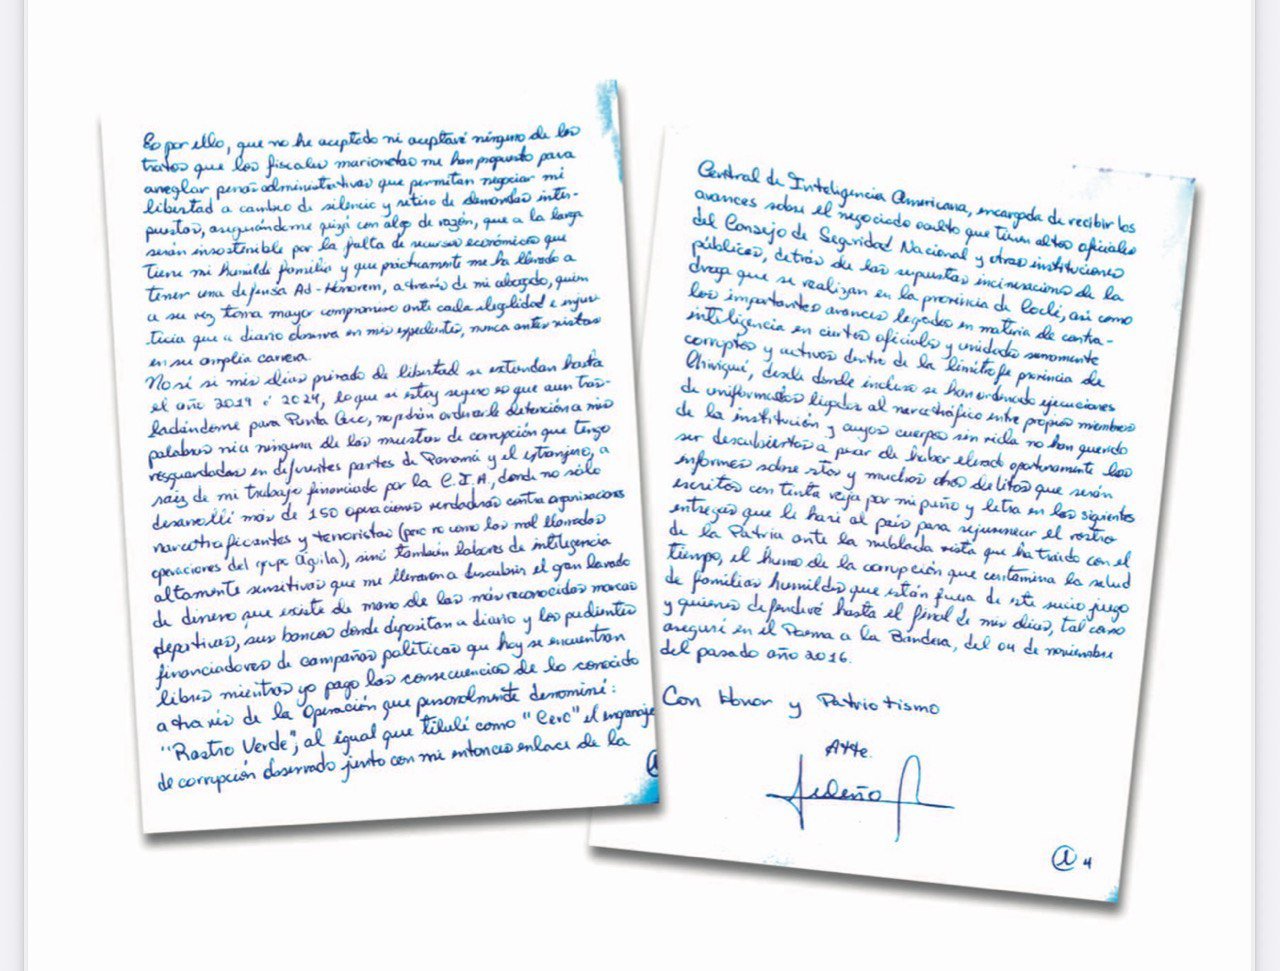 Es por ello, que no he aceptado ni aceptaré ninguno de los
tratos que los fiscales marionetas me han propuesto para
arreglar penas administrativas que permitan negociar mi
libertad a cambio de silencio y retiro de demandas inter-
puestas, asegurándome quizá con algo de razón, que a la larga
serán insostenible por la falta de recursos económicos que
tiene mi humilde familia y que prácticamente me ha llevado a
tener una defensa Ad-Honorem, a través de mi abogado, quien
a su vez toma mayor compromiso ante cada ilegalidad e injus-
ticia que a diario observa en mis expedientes, nunca antes vistas
en su amplia carrera.
No sé si mis días privado de libertad se extiendan hasta
el año 2019 ó 2024, lo que si estoy seguro es que aun tras-
ladándome para Punta Coco, no podrán ordenarle detención a mis
palabras ni a ninguna de las muestras de corrupción que tengo
resguardadas en diferentes partes de Panamá y el extranjero, a
raíz de mi trabajo financiado por la C.I.A, donde no sólo
desarrollé más de 150 operaciones verdaderas contra organizaciones
narcotraficantes y terroristas (pero no como las mal llamadas
operaciones del grupo Águila), sinó también labores de inteligencia
altamente sensitivas que me llevaron a descubrir el gran lavado
de dinero que existe de mano de las más reconocidas marcas
deportivas, sus bancos donde depositan a diario y los pudientes
financiadores de campañas políticas que hoy se encuentran
libres mientras yo pago las consecuencias de lo conocido
a través de la Operación que personalmente denominé:
"Rastro Verde", al igual que titulé como "Cero" el engranaje
de corrupción observado junto con mi entonces enlace de la
Central de Inteligencia Americana, encargada de recibir los
avances sobre el negociado oculto que tienen altos oficiales
del Consejo de Seguridad Nacional y otras instituciones
públicas, detrás de las supuestas incineraciones de la
droga que se realizan en la provincia de Coclé, así como
los importantes avances legados en materia de contra-
inteligencia en ciertos oficiales y unidades sumamente
corruptos y activos dentro de la limítrofe provincia de
Chiriquí, desde donde incluso se han ordenado ejecuciones
de uniformados ligados al narcotráfico entre propios miembros
de la institución y cuyos cuerpos sin vida no han querido
ser descubiertos a pesar de haber elevado oportunamente los
informes sobre stos y muchos otros delitos que serán
escritos con tinta roja por mi puño y letra en las siguientes
entregas que le haré al país para rejuvenecer el rostro
de la Patria ante la nublada vista que ha traído con el
tiempo, el humo de la corrupción que contamina la salud
de familias humildes que están fuera de este sucio juego
y quienes defenderé hasta el final de mis días, tal como
aseguré en el Poema a la Bandera, del 04 de noviembre
del pasado año 2016.
Con Honor y Patriotismo
Atte.
Cedeño
4